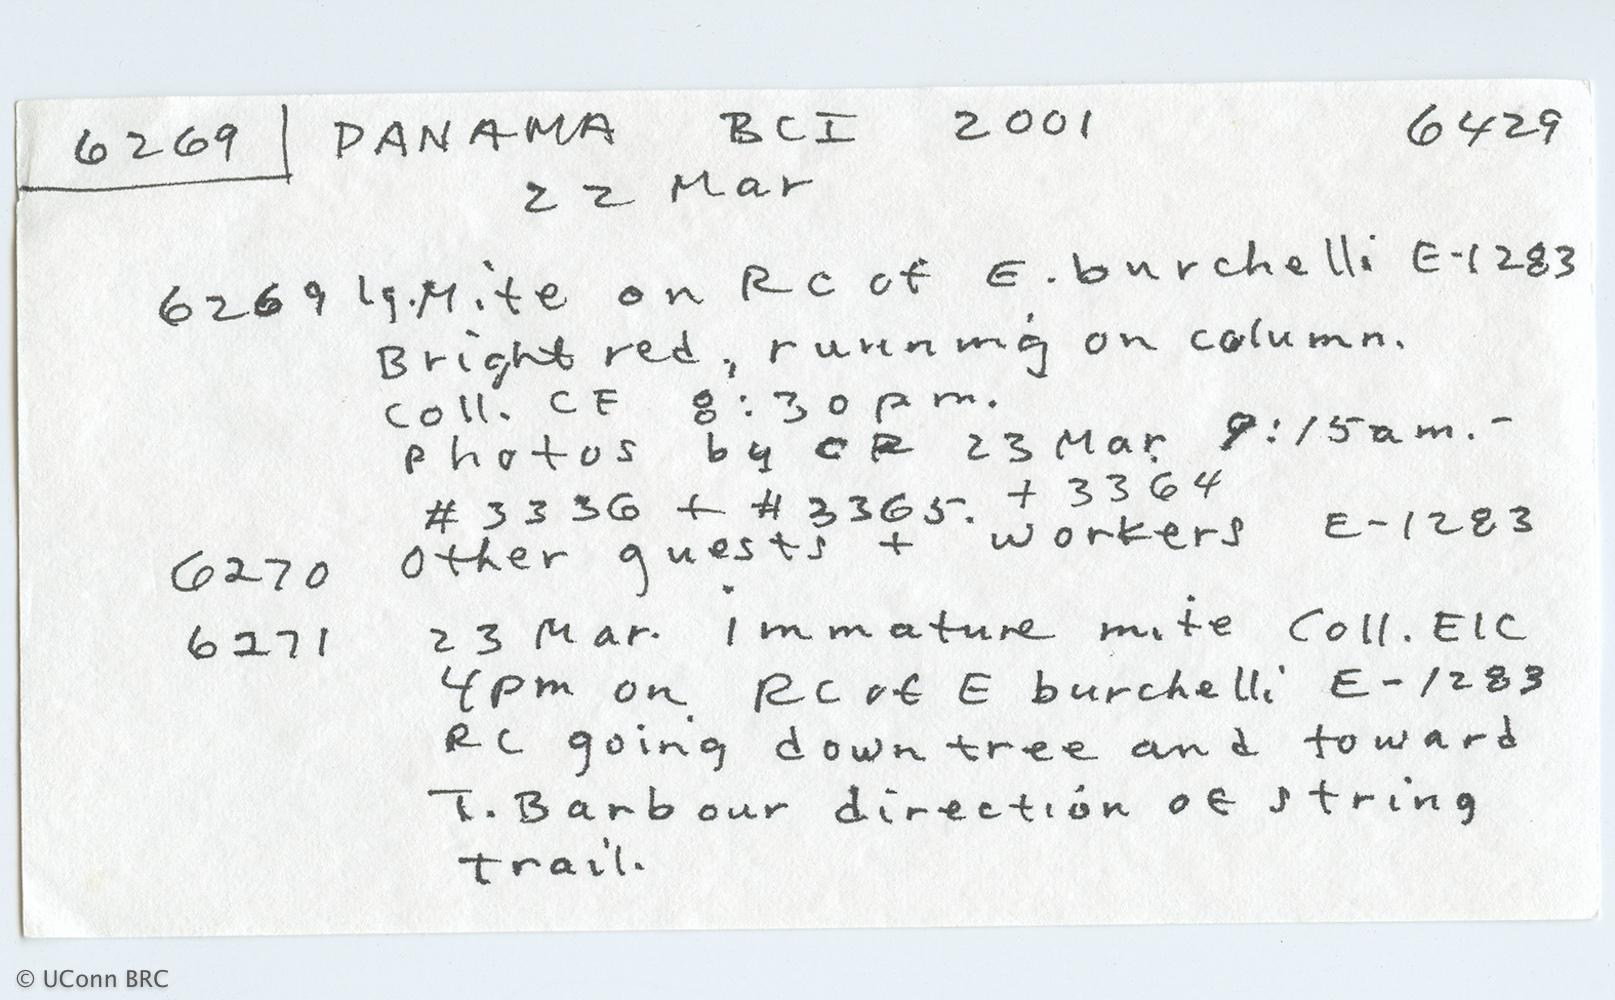 6269 PANAMA BCI 2001 6429
22 Mar
6269 lg. Mite on RC of E. burchelli E-1283
Bright red, running on column.
Coll. CF 8:30 pm.
Photos by CR 23 Mar. 9:15 am. -
#3336 + #3365. + 3364
6270 Other guests + workers E-1283
6271 23 Mar. immature mite Coll. EIC
4 pm on RC of E burchelli E-1283
RC going down tree and toward
T. Barbour direction of string
trail.
© UConn BRC